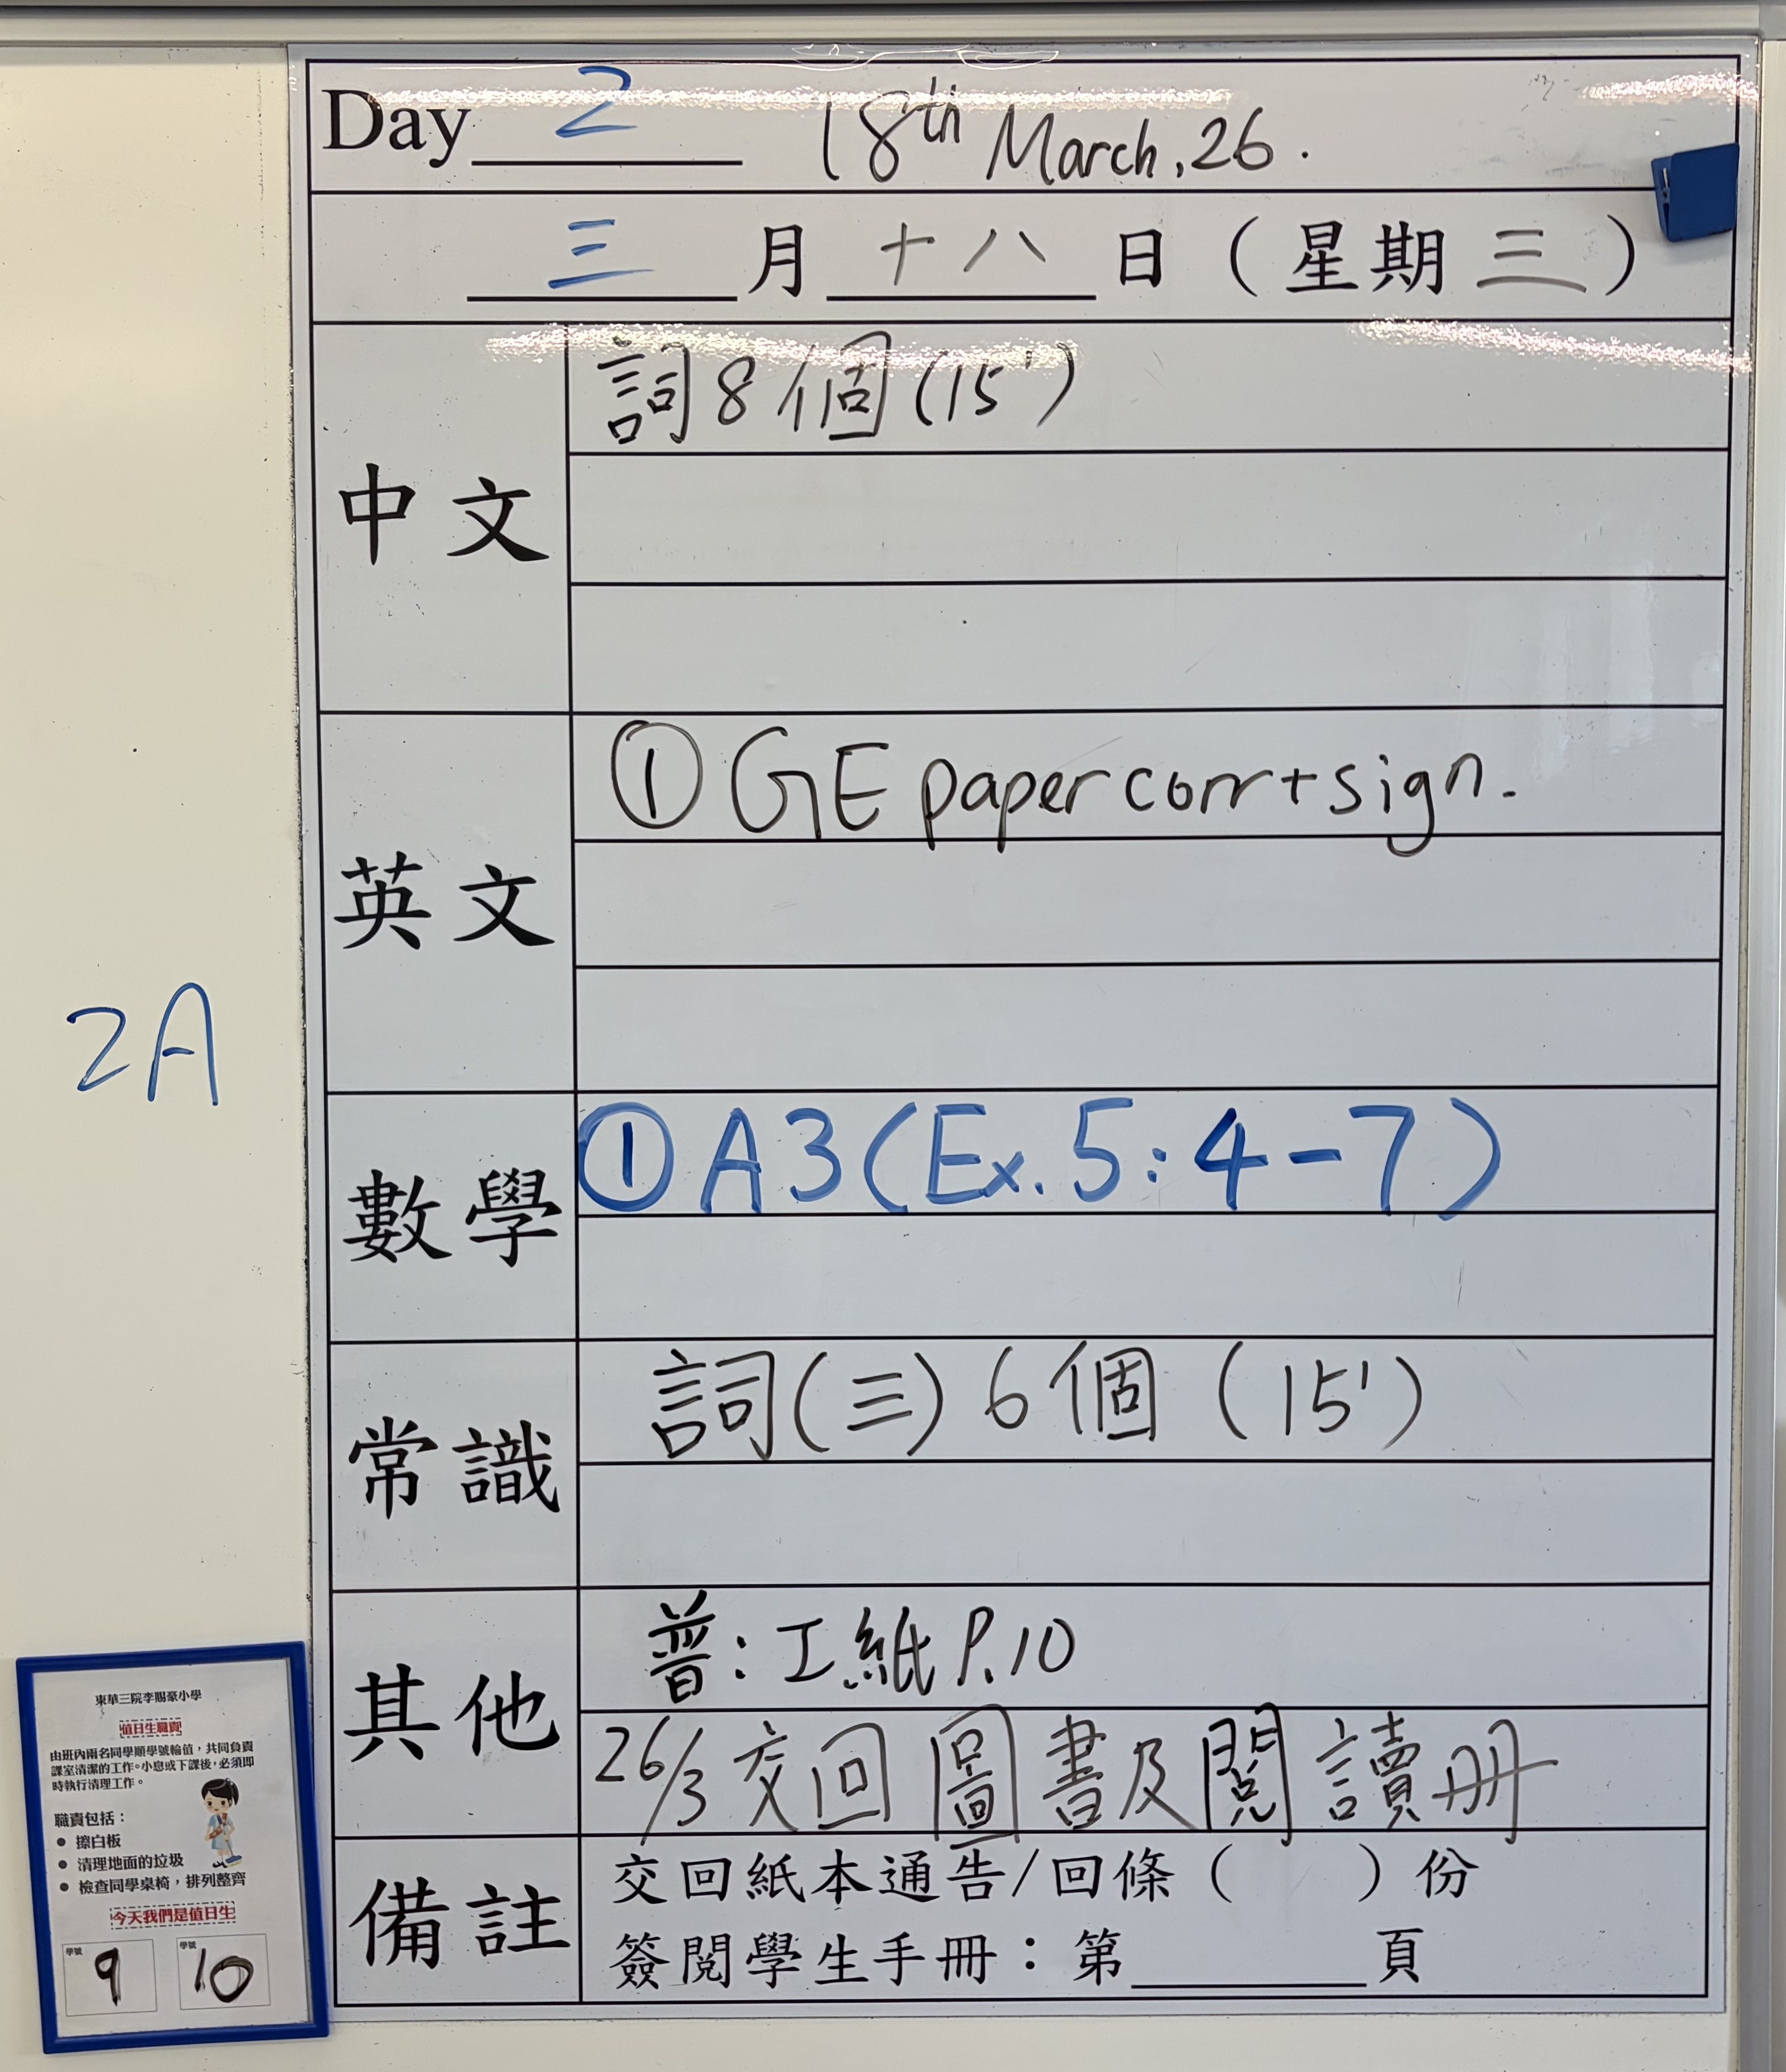 Day 2 18th March, 26.
三月十八日（星期三）
中文
詞8個(15')
英文
① GE paper corr+sign.
2A
數學
① A3(Ex.5:4-7)
常識
詞(三)6個(15')
其他
普:工紙P.10
26/3交回圖書及閱讀冊
備註
交回紙本通告/回條（ ）份
簽閱學生手冊：第____頁
東華三院李賜豪小學
值日生職責
由班內兩名同學順學號輪值，共同負責
課室清潔的工作。小息或下課後，必須即
時執行清理工作。
職責包括：
● 擦白板
● 清理地面的垃圾
● 檢查同學桌椅，排列整齊
今天我們是值日生
學號 9 學號 10